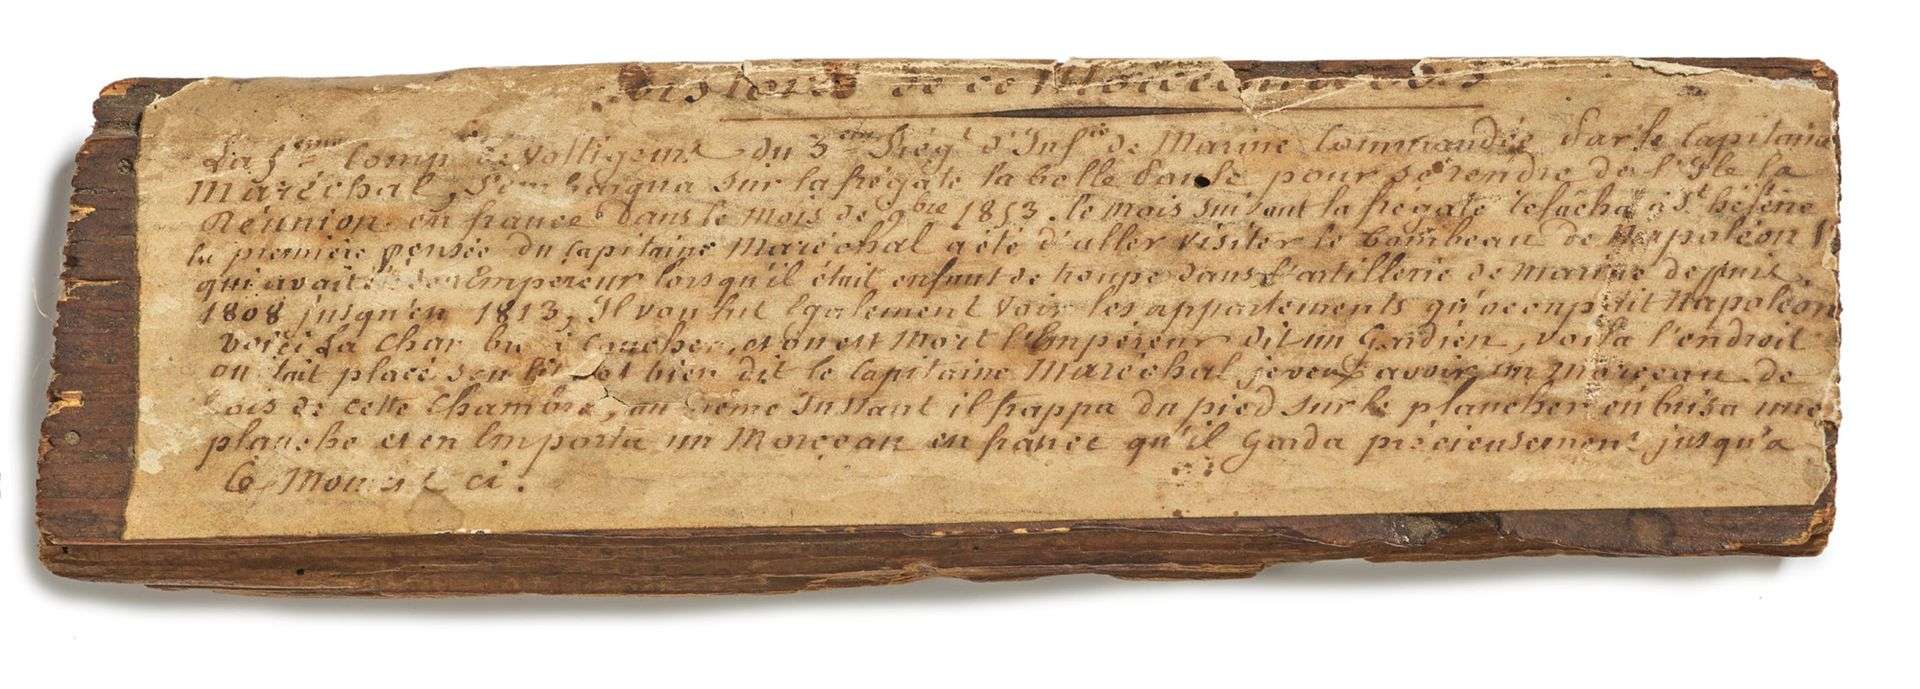 de ce Morceau de bois
La 5eme Compie de Voltigeurs du 3eme Régt d'Infie de Marine Commandée Par le Capitaine
Maréchal, S'embarqua sur la frégate la belle Poule pour se rendre de l'Isle la
Réunion en france dans le mois de 9bre 1853. le mois suivant la frégate relacha a St héléne
la premiére pensée du Capitaine Maréchal a été d'aller visiter le tombeau de Napoléon 1er
qui avait été son Empereur lorsqu'il était enfant de troupe dans l'artillerie de Marine depuis
1808 jusqu'en 1813. Il voulut Également Voir les appartements qu'occupait Napoléon
Voici La Chambre à Coucher, et ou est Mort l'Empéreur dit un Gardien, voila l'endroit
ou était placé son lit et bien dit le Capitaine Maréchal je veux avoir un Morceau de
bois de cette Chambre, au même Instant il frappa du pied sur le plancher en brisa une
planche et en Emporta un Morçeau en france qu'il Garda précieusement jusqu'a
Ce Moment ci.